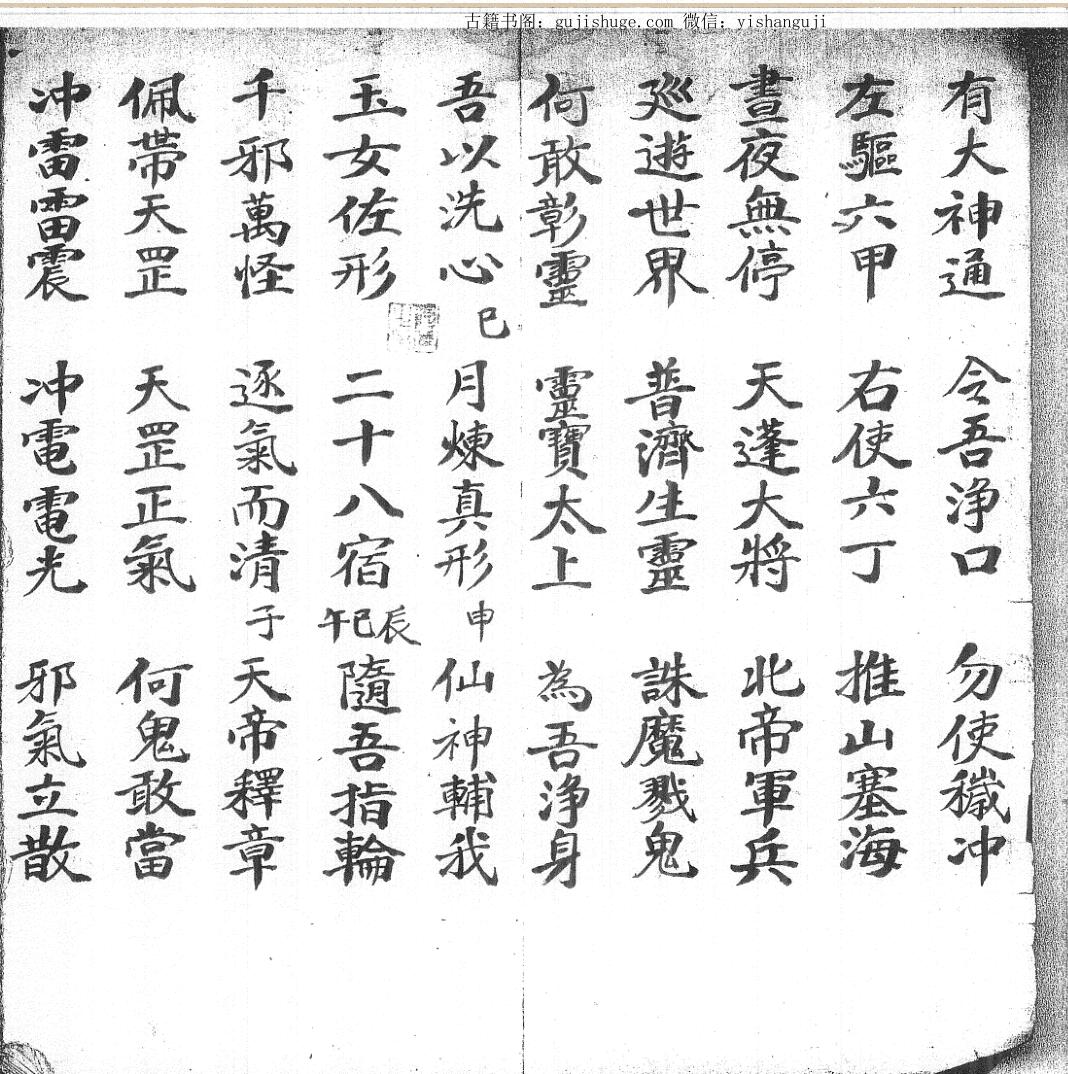 古籍书阁：gujishuge.com 微信：yishanguji
有大神通 令吾浄口 勿使穢冲
左驅六甲 右使六丁 推山塞海
晝夜無停 天蓬大將 北帝軍兵
廵遊世界 普濟生靈 誅魔戮鬼
何敢彰靈 靈寶太上 為吾浄身
吾以洗心 已 月煉真形 申 仙神輔我
玉女佐形 二十八宿 辰巳午 隨吾指輪
千邪萬怪 逐氣而清 子 天帝釋章
佩帶天罡 天罡正氣 何鬼敢當
冲雷雷震 冲電電光 邪氣立散